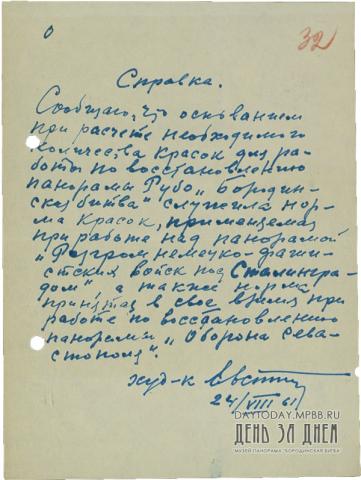 32
Справка.
Сообщаю, что основанием
при расчете необходимого
количества красок для ра-
боты по восстановлению
панорамы Рубо „Бородин-
ская битва" служила нор-
ма красок, применяемая
при работе над панорамой
„Разгром немецко-фаши-
стских войск под Сталингра-
дом", а также норма
принятая в свое время при
работе по восстановлению
панорамы „Оборона Сева-
стополя".
худ-к
24/VIII 61
DAYTODAY.MPBB.RU
ДЕНЬ ЗА ДНЕМ
МУЗЕЙ ПАНОРАМА "БОРОДИНСКАЯ БИТВА"